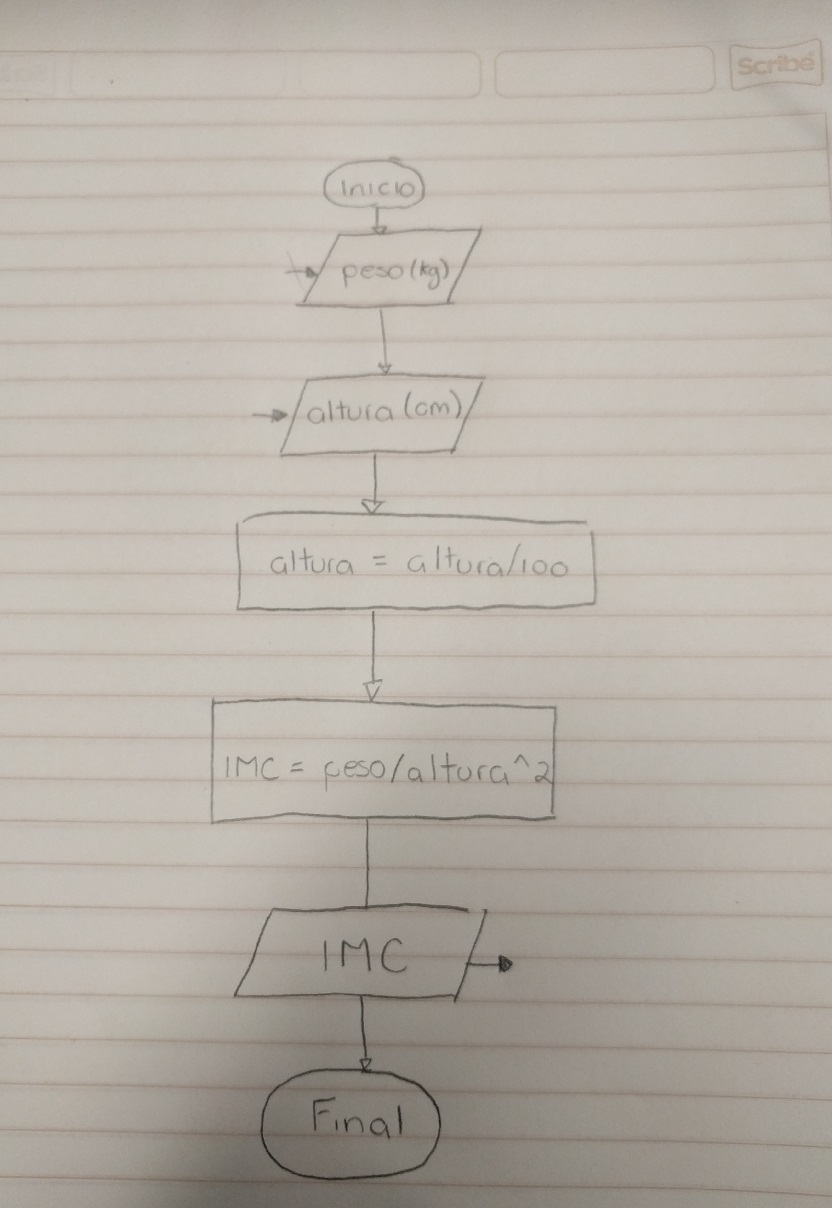 Scribe
Inicio
peso (kg)
altura (cm)
altura = altura/100
IMC = peso/altura^2
IMC
Final